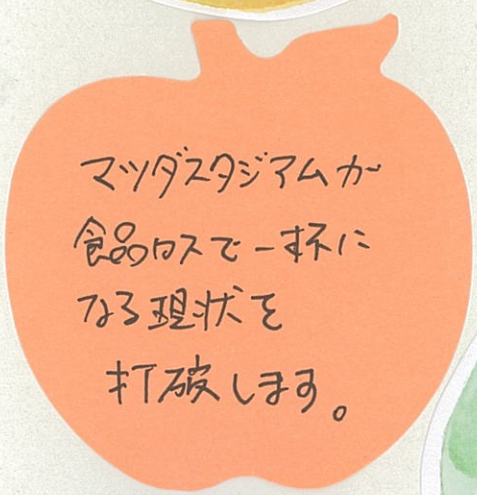 マツダスタジアムが
食品ロスで一杯に
なる現状を
打破します。